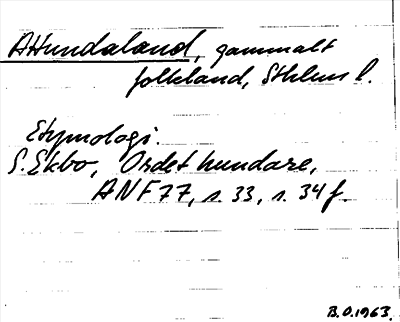 Attundaland, gammalt
folkland, Sthlms l.
Etymologi.
S. Ekbo, Ordet hundare,
ANF 77, s. 33, s. 34 f.
B.O. 1963.